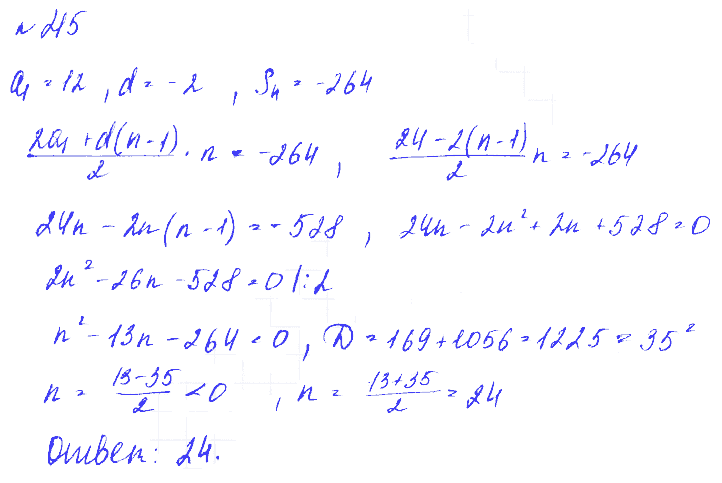 № 215
a₁ = 12, d = -2, Sₙ = -264
(2a₁ + d(n-1))/2 · n = -264, (24 - 2(n-1))/2 n = -264
24n - 2n(n-1) = -528, 24n - 2n² + 2n + 528 = 0
2n² - 26n - 528 = 0 |:2
n² - 13n - 264 = 0, D = 169 + 1056 = 1225 = 35²
n = (13-35)/2 < 0, n = (13+35)/2 = 24
Ответ: 24.